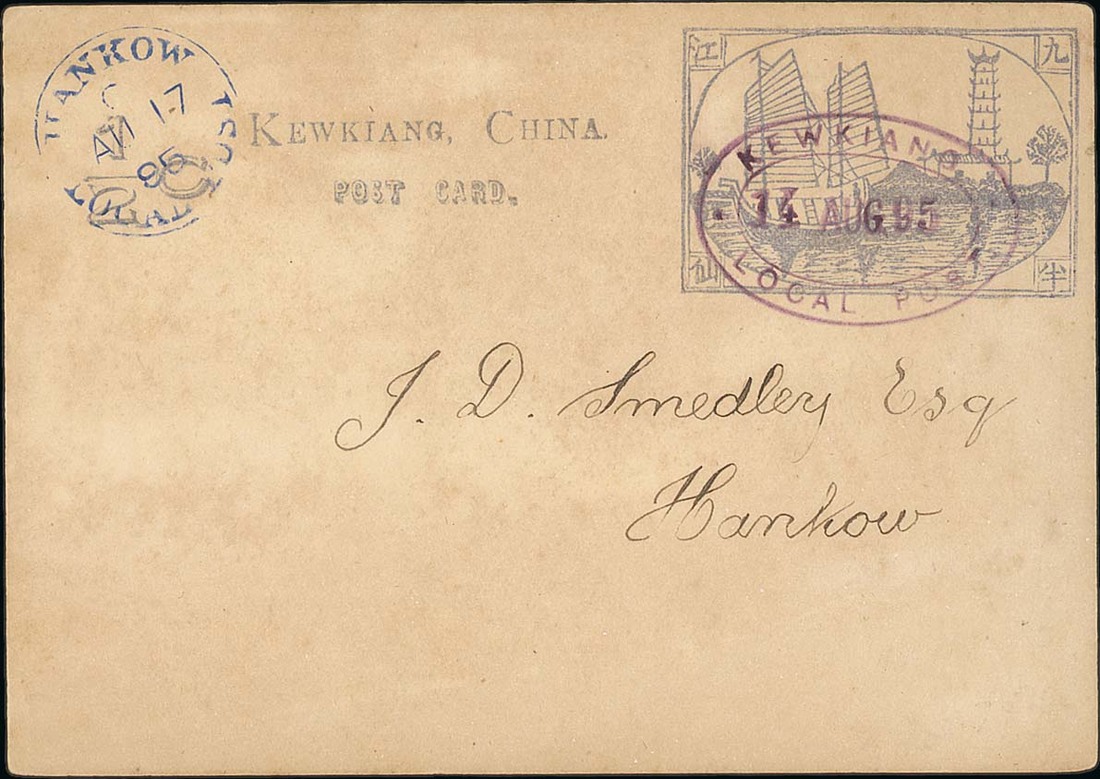 HANKOW
C
AU 17
95
LOCAL POST
KEWKIANG, CHINA.
POST CARD.
江 九
仙 半
KEWKIANG
14 AUG 95
LOCAL POST
J. D. Smedley Esq
Hankow